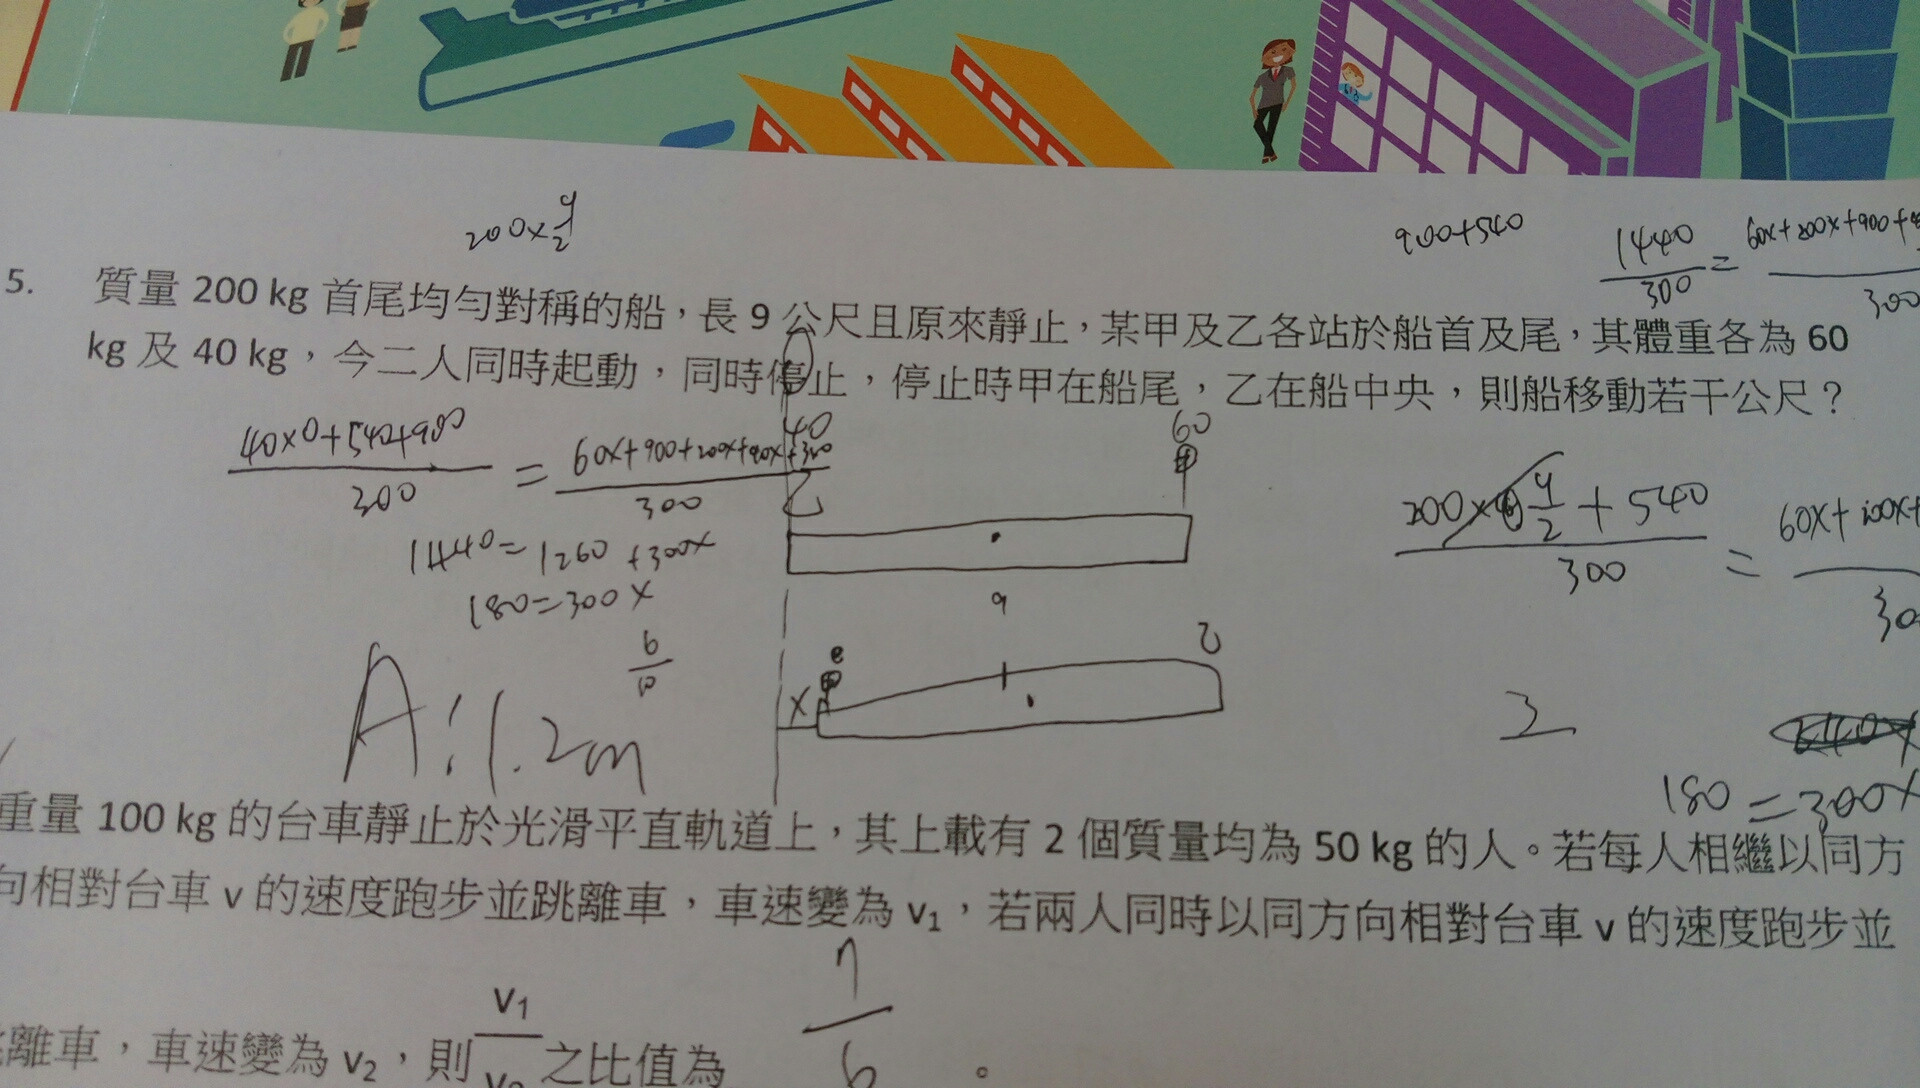 200×9/2
900+540
1440/300 = 60x+200x+900+
300
5. 質量 200 kg 首尾均勻對稱的船，長 9 公尺且原來靜止，某甲及乙各站於船首及尾，其體重各為 60
kg 及 40 kg，今二人同時起動，同時停止，停止時甲在船尾，乙在船中央，則船移動若干公尺？
40×0+540+900/300 = 60x+900+200x+40x+360/300
40
乙
60
甲
1440=1260+300x
180=300x
6/10
9
200×9/2+540/300 = 60x+200x+
30
乙
甲
x
A:1.2m
180=300x
重量 100 kg 的台車靜止於光滑平直軌道上，其上載有 2 個質量均為 50 kg 的人。若每人相繼以同方
向相對台車 v 的速度跑步並跳離車，車速變為 v₁，若兩人同時以同方向相對台車 v 的速度跑步並
離車，車速變為 v₂，則 v₁/v₂ 之比值為 7/6 。